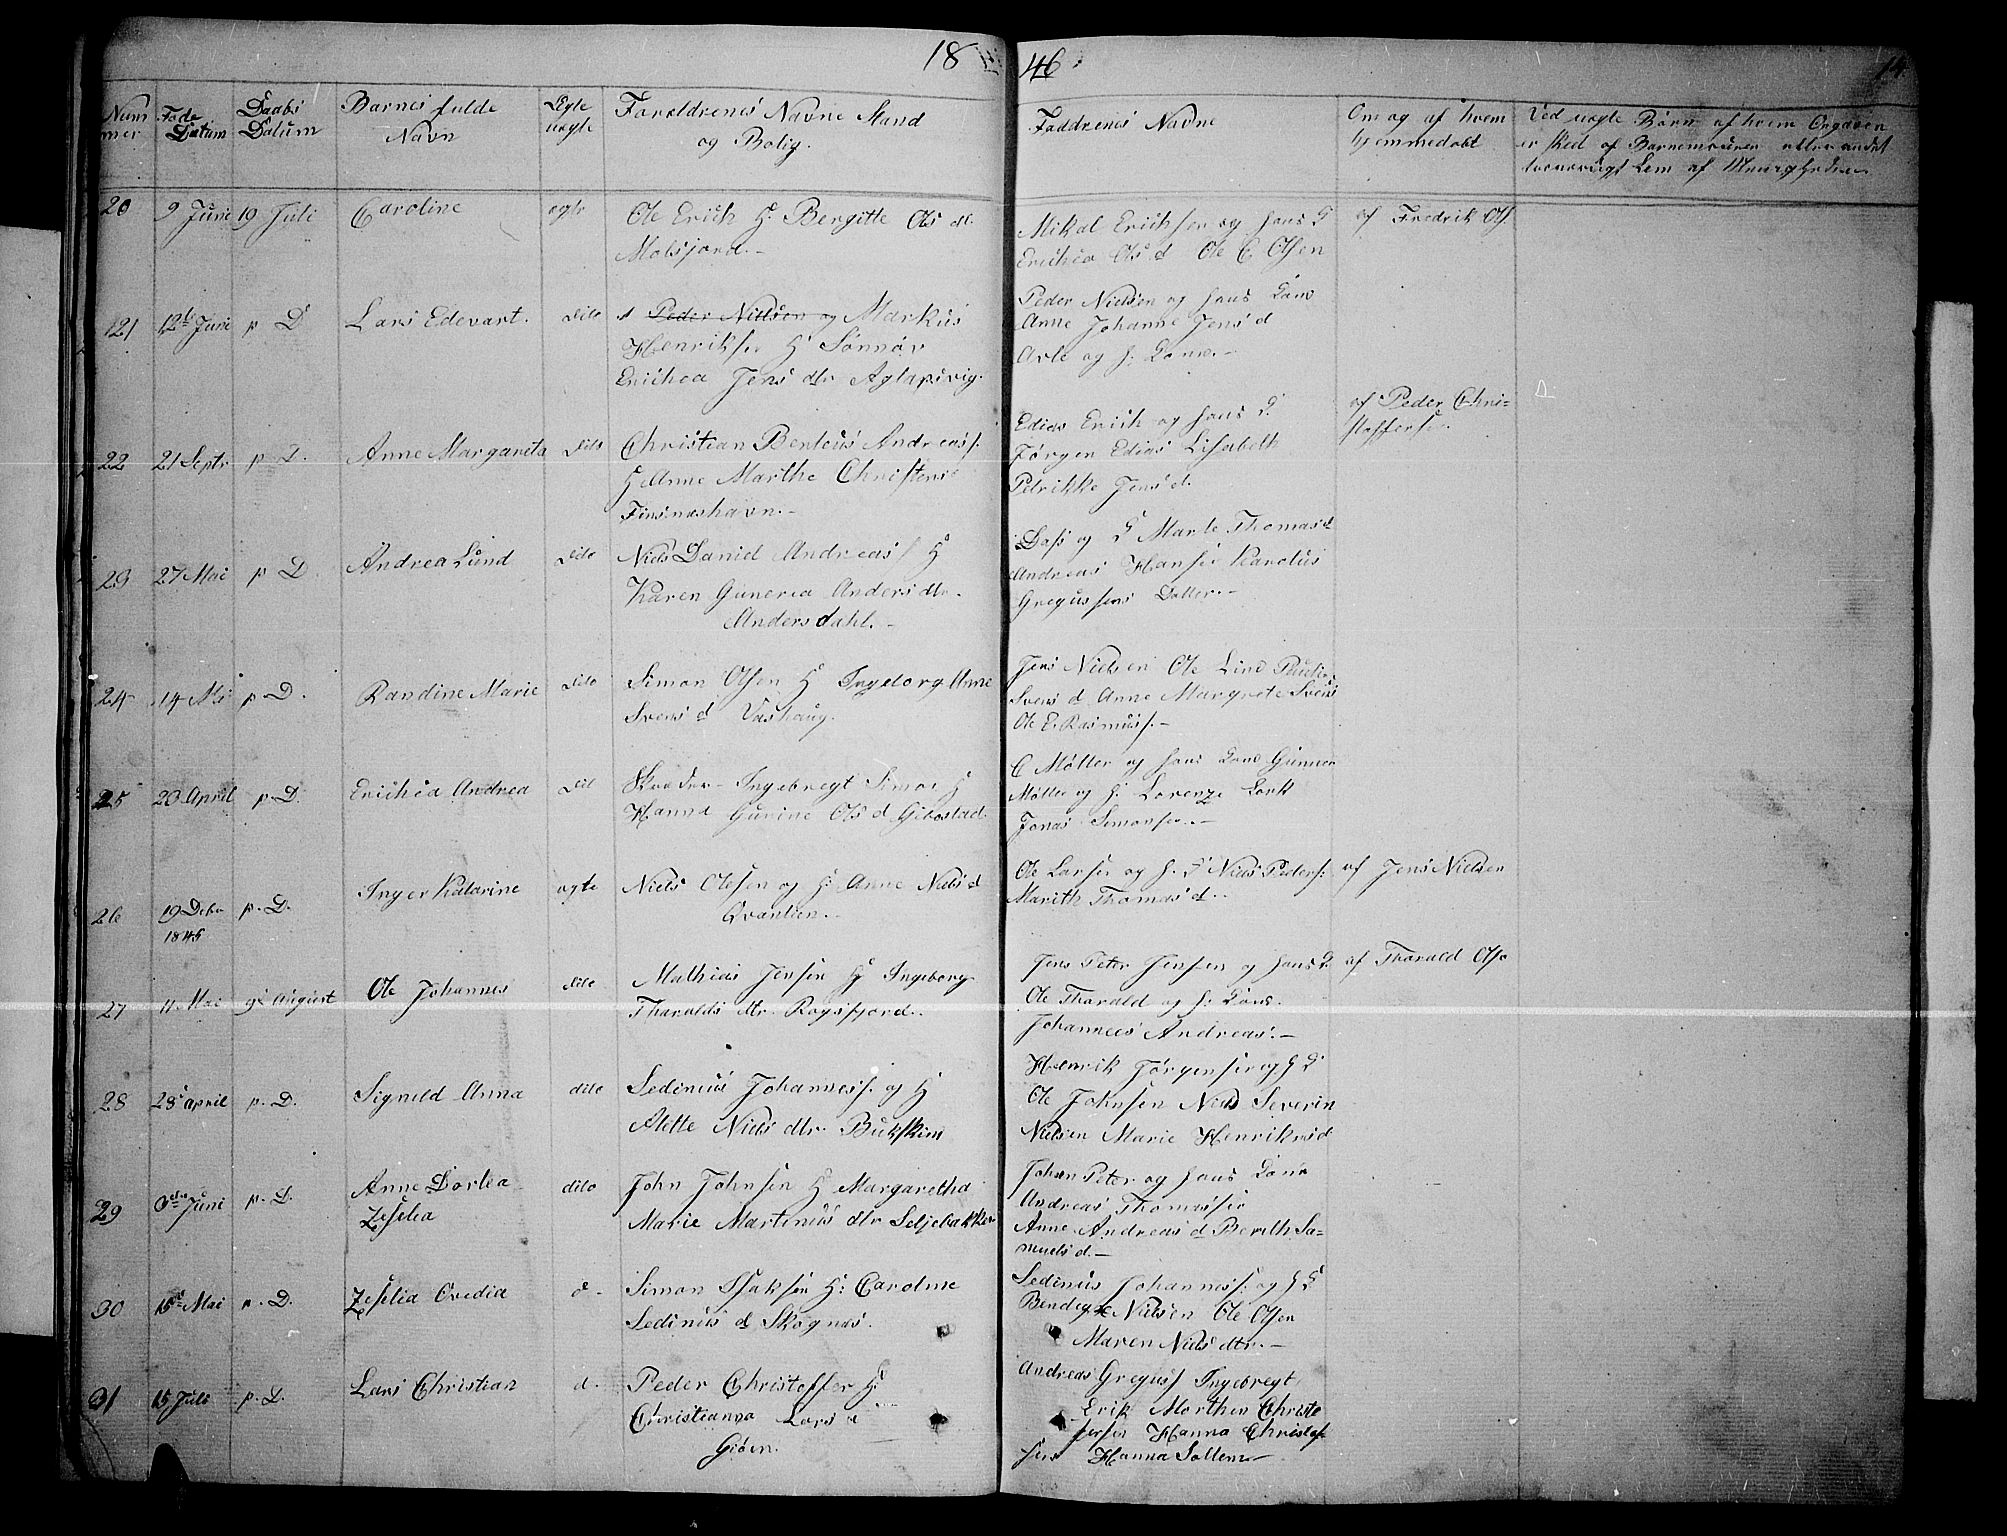 1846
14
Num mer
Føde Datum
Daabs Datum
Barnes fulde Navn
Ægte uægte
Foreldrenes Navne Stand og Bolig.
Faddrenes Navne
Om og af hvem hjemmedøbt
Ved uægte Børn af hvem Opgaven er sked af Barnemoderen eller andet Lem af Menigheden
20 9 Juni 19 Juli Caroline ægte
Ole Erich H Bergitte Ols dtr
Molsfjord.-
Mikal Erichsen og hans
Erichea Ols d Ole C Olsen
af Fredrik Ols
121 12 Juni p D Lars Edevart. dito
Peder Nielsen og Markus
Henriksen H Sønnøv
Erichea Jens dtr Aglapsvig.
Peder Nielsen og hans Kone
Anne Johanne Jens d
og h. Kone.-
22 21 Septr p D. Anne Margareta dito
Christian Benteus Andreas.
H Anne Marthe Christens
Finsnæshavn.-
Edias Erich og hans
Jørgen Edias Lisabeth
Petrikke Jens d.
af Peder Chri=
stoffersen.
23 27 Mai p D. Andrea Lund dito
Niels Daniel Andreas H
Karen Guneria Anders dtr.
Andersdahl.-
Dass og Marte Thomas d
Andreas Hansen Karolus
Gregussens Datter.-
24 14 Mai p D. Randine Marie dito
Simon Olsen H Ingeborg Anne
Svens d Vashaug.
Jens Nielsen Ole Lind
Svens d Anne Margrete Svens
Ole E. Rasmuss.-
25 20 April p D. Erichea Andrea dit
Skræder Ingebregt Simons H
Hanna Gurine Ols d Gibostad
C Møller og hans Kone Gunner
Møller og h: Lorenze
Jonas Simonsen.-
26 19 Debr 1845 p. D. Inger Katarine ægte
Niels Olsen og H: Anne Niels d
Qvantien.-
Ole Larsen og h. Niels Peders.
Marith Thomas d.
af Jens Nielsen
27 11 Mai 9 August Ole Johannes dito
Mathias Jensen H Ingeborg
Tharalds dtr. Rogsfjord.
Jens Peter Jensen og hans
Ole Tharald og h: Kone.
Johannes Andreas.-
af Tharald Ols
28 28 april p. D. Signeld Anna dito
Sedinius Johanness. og H
Alette Niels dtr. Bukskin
Henrik Jørgensen og
Ole Johnsen Niels Severin
Nielsen Marie Henriks d
29 Juni p. D. Anne Dortea
Zesilia dito
John Johnsen H Margaretha
Marie Martinus dtr Seljebakken
Johan Peter og hans Kone
Andreas Thomassen
Anne Andreas d Berith Sa=
muels d.-
30 15 Mai p. D. Zesilia Ovedia d.
Simon Isaksen H: Caroline
Sedinus d Skognæs.
Sedinius Johanness. og
Bendigte Nielsen Ole Olsen
Maren Niels dtr.-
31 15 Juli p. D. Lars Christian d.
Peder Christoffer H:
Christianna Lars d
Giøen.
Andreas Greguss Ingebregt
Erik Morthen Christo
fersen Hanna Christof
sen Hanna Soltem-